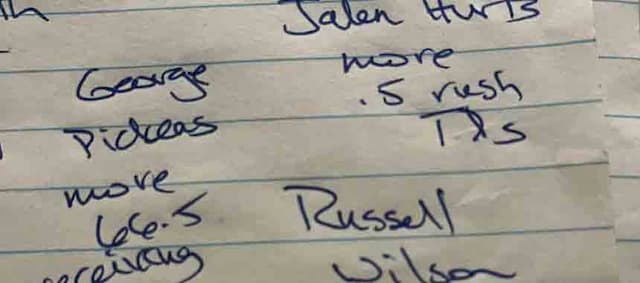 Jalen Hurts
more
.5 rush
TDs
George
Pickens
more
66.5
receiving
Russell
Wilson